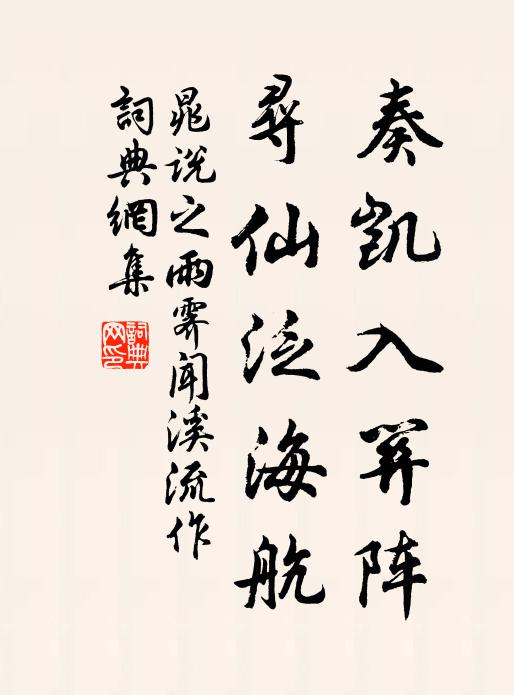 奏凯入关阵
尋仙泛海航
晁说之雨霁闻溪流作
詞典網集
詞典网印